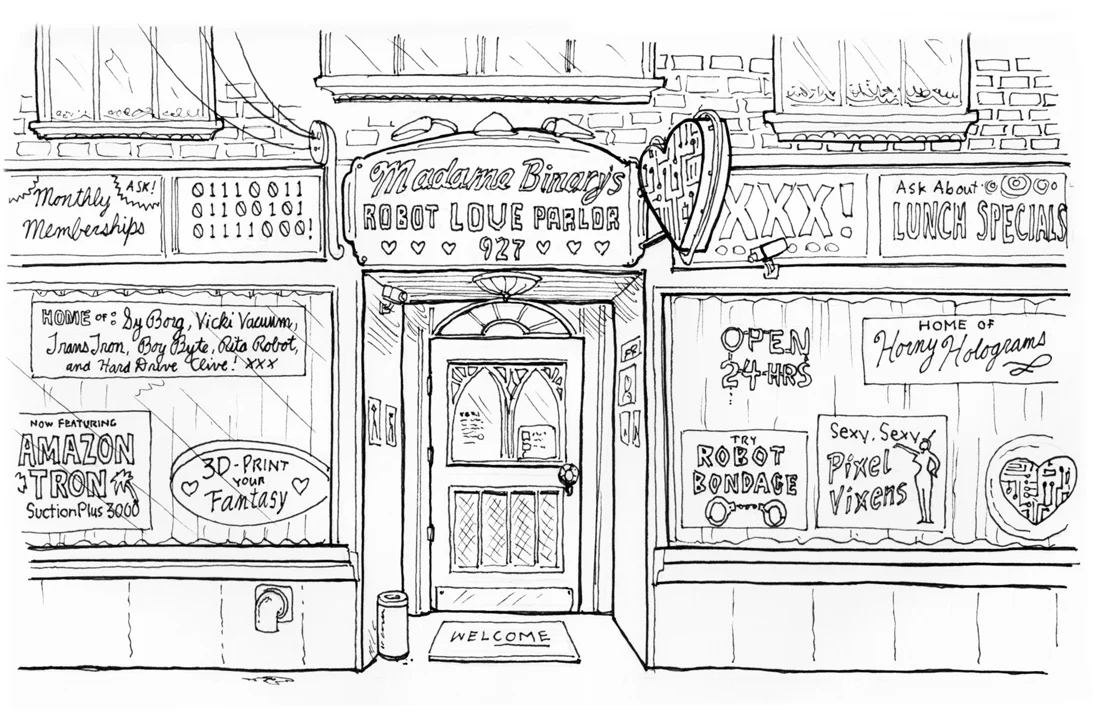 Monthly
Memberships
ASK!
01110011
01100101
01111000!
Madame Binary's
ROBOT LOVE PARLOR
927
XXX!
Ask About
LUNCH SPECIALS
HOME OF: Sy Borg, Vicki Vacuum,
Trans Tron, Boy Byte, Rita Robot,
and Hard Drive Clive! XXX
NOW FEATURING
AMAZON
TRON
SuctionPlus 3000
3D-PRINT
YOUR
Fantasy
OPEN
24-HRS
HOME OF
Horny Holograms
TRY
ROBOT
BONDAGE
Sexy, Sexy
Pixel
Vixens
WELCOME